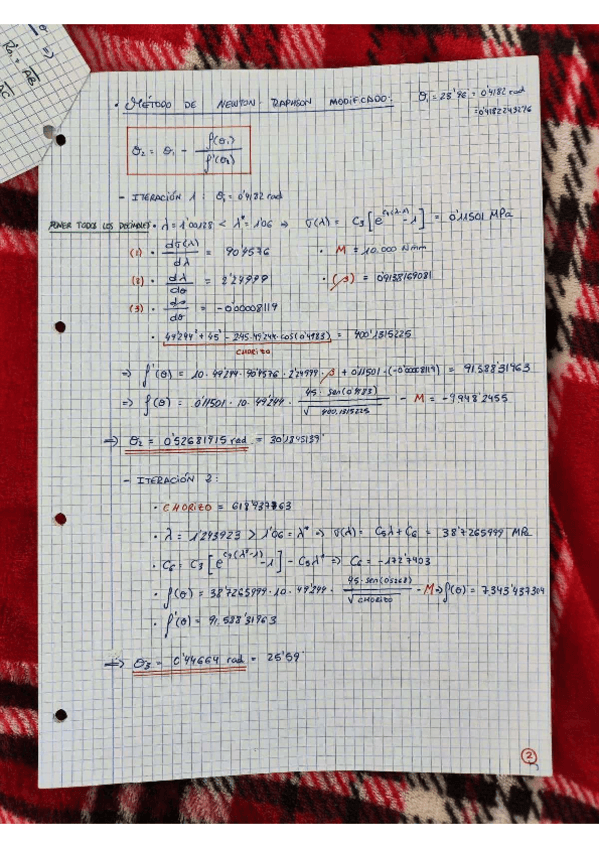 · MÉTODO DE NEWTON-RAPHSON MODIFICADO: θ₁ = 23'96 = 0'4182 rad
= 0'4182243276
θ₂ = θ₁ - f(θ₁) / f'(θ₂)
- ITERACIÓN 1 : θ₁ = 0'4182 rad
PONER TODOS LOS DECIMALES · λ = 1'00128 < λ* = 1'06 ⇒ σ(λ) = C₃[e^(C₄(λ-1)) - 1] = 0'11501 MPa
(1) · dσ(λ)/dλ = 90'4576 · M = 10.000 Nmm
(2) · dλ/dθ = 2'24999 · (β) = 0'4138169081
(3) · dσ/dθ = -0'00008119
· 49'244² + 45² - 2·45·49'244·cos(0'4183) = 400'1315225
CHORIZO
⇒ f'(θ) = 10 · 49'244 · 90'4576 · 2'24999 · β + 0'11501 · (-0'00008119) = 91.588'31963
⇒ f(θ) = 0'11501 · 10 · 49'244 · 45 · sen(0'4183) / √400,1315225 - M = -9.948'2455
⇒ θ₂ = 0'52681915 rad = 30'1845139°
- ITERACIÓN 2 :
· CHORIZO = 618'937763
· λ = 1'243923 > 1'06 = λ* ⇒ σ(λ) = C₅λ + C₆ = 38'7265999 MPa
· C₆ = C₃[e^(C₄(λ*-1)) - 1] - C₅λ* ⇒ C₆ = -172'7403
· f(θ) = 38'7265999 · 10 · 49'244 · 45 · sen(0'5268) / √CHORIZO - M ⇒ f(θ) = 7.343'437304
· f'(θ) = 91.588'31963
⇒ θ₃ = 0'44664 rad = 25'59°
2